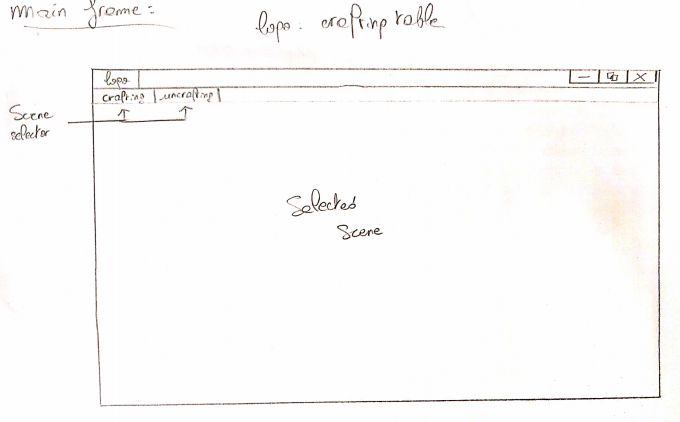 Main frame :
logo : crafting table
logo
crafting | uncrafting |
Scene
selector
Selected
Scene